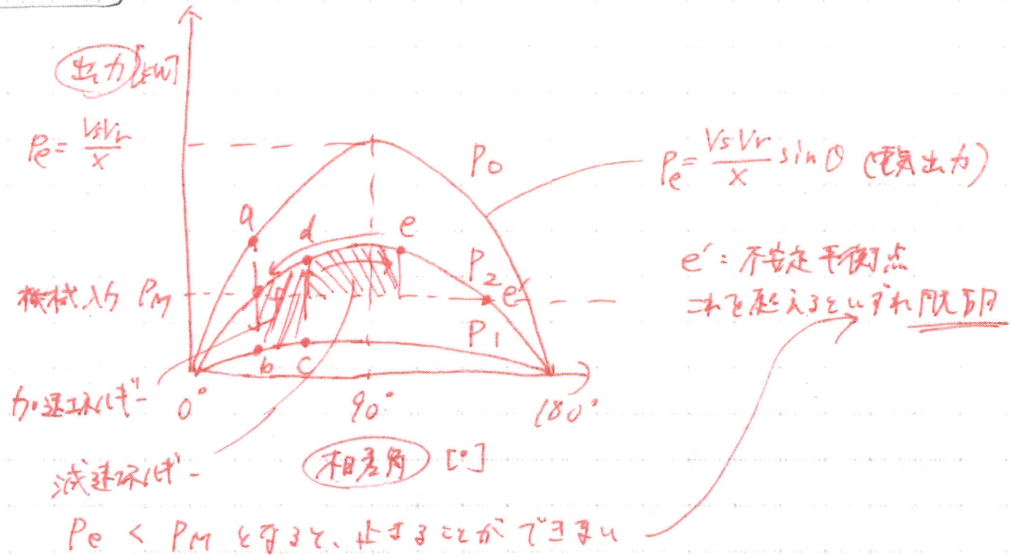 出力[kW]
Pe = VsVr/X
P0
Pe = VsVr/X sinθ (電気出力)
a
d
e
P2
e'
機械入力 PM
e': 不安定平衡点
これを超えるといずれ脱調
P1
b
c
加速エネルギー
0°
90°
180°
減速エネルギー
相差角 [°]
Pe < PM となると、止まることができない